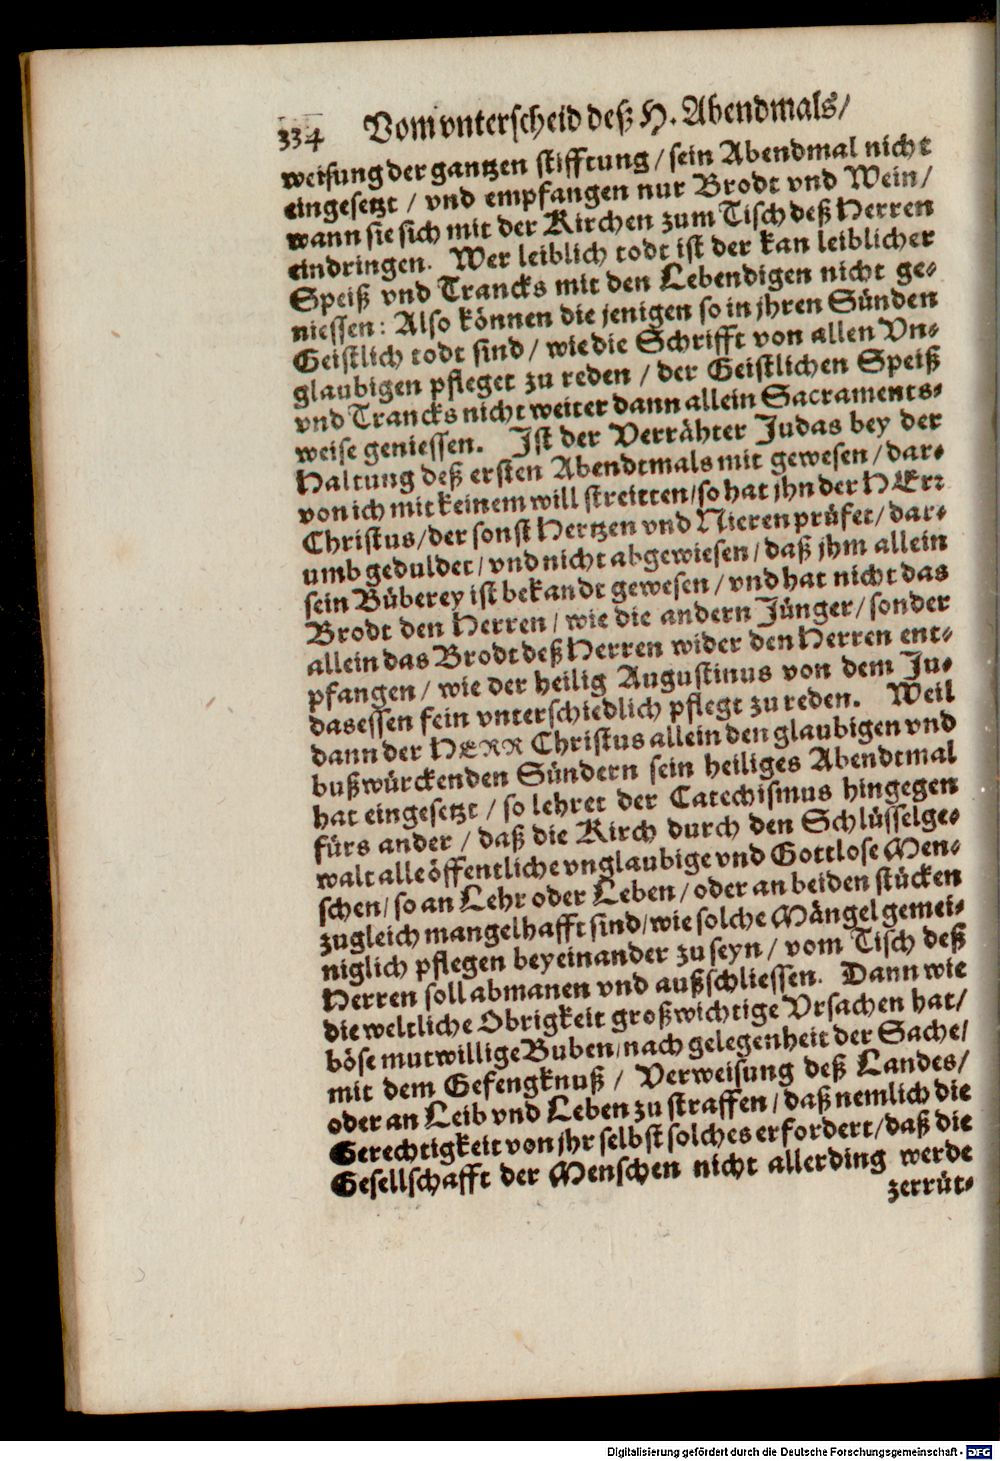 334 Vom vnterscheid deß H. Abendmals/
weisung der gantzen stifftung / sein Abendmal nicht
eingesetzt / vnd empfangen nur Brodt vnd Wein/
wann sie sich mit der Kirchen zum Tisch deß Herren
eindringen. Wer leiblich todt ist der kan leiblicher
Speiß vnd Trancks mit den Lebendigen nicht ge-
niessen: Also können die jenigen so in jhren Sünden
Geistlich todt sind / wie die Schrifft von allen Vn-
glaubigen pfleget zu reden / der Geistlichen Speiß
vnd Trancks nicht weiter dann allein Sacraments-
weise geniessen. Ist der Verrähter Judas bey der
Haltung deß ersten Abendtmals mit gewesen / dar-
von ich mit keinem will streitten/so hat jhn der HErr
Christus/der sonst Hertzen vnd Nieren prüfet/ dar-
umb geduldet / vnd nicht abgewiesen / daß jhm allein
sein Büberey ist bekandt gewesen / vnd hat nicht das
Brodt den Herren / wie die andern Jünger/ sonder
allein das Brodt deß Herren wider den Herren ent-
pfangen / wie der heilig Augustinus von dem Ju-
dasessen fein vnterschiedlich pflegt zu reden. Weil
dann der HERR Christus allein den glaubigen vnd
bußwürckenden Sündern sein heiliges Abendtmal
hat eingesetzt / so lehret der Catechismus hingegen
fürs ander / daß die Kirch durch den Schlüsselge-
walt alle öffentliche vnglaubige vnd Gottlose Men-
schen/ so an Lehr oder Leben / oder an beiden stücken
zugleich mangelhafft sind/ wie solche Mängel gemei-
niglich pflegen bey einander zu seyn / vom Tisch deß
Herren soll abmanen vnd außschliessen. Dann wie
die weltliche Obrigkeit großwichtige Vrsachen hat/
böse mutwillige Buben/ nach gelegenheit der Sache/
mit dem Gefengknuß / Verweisung deß Landes/
oder an Leib vnd Leben zu straffen / daß nemlich die
Gerechtigkeit von jhr selbst solches erfordert/ daß die
Gesellschafft der Menschen nicht allerding werde
zerrüt-
Digitalisierung gefördert durch die Deutsche Forschungsgemeinschaft - DFG